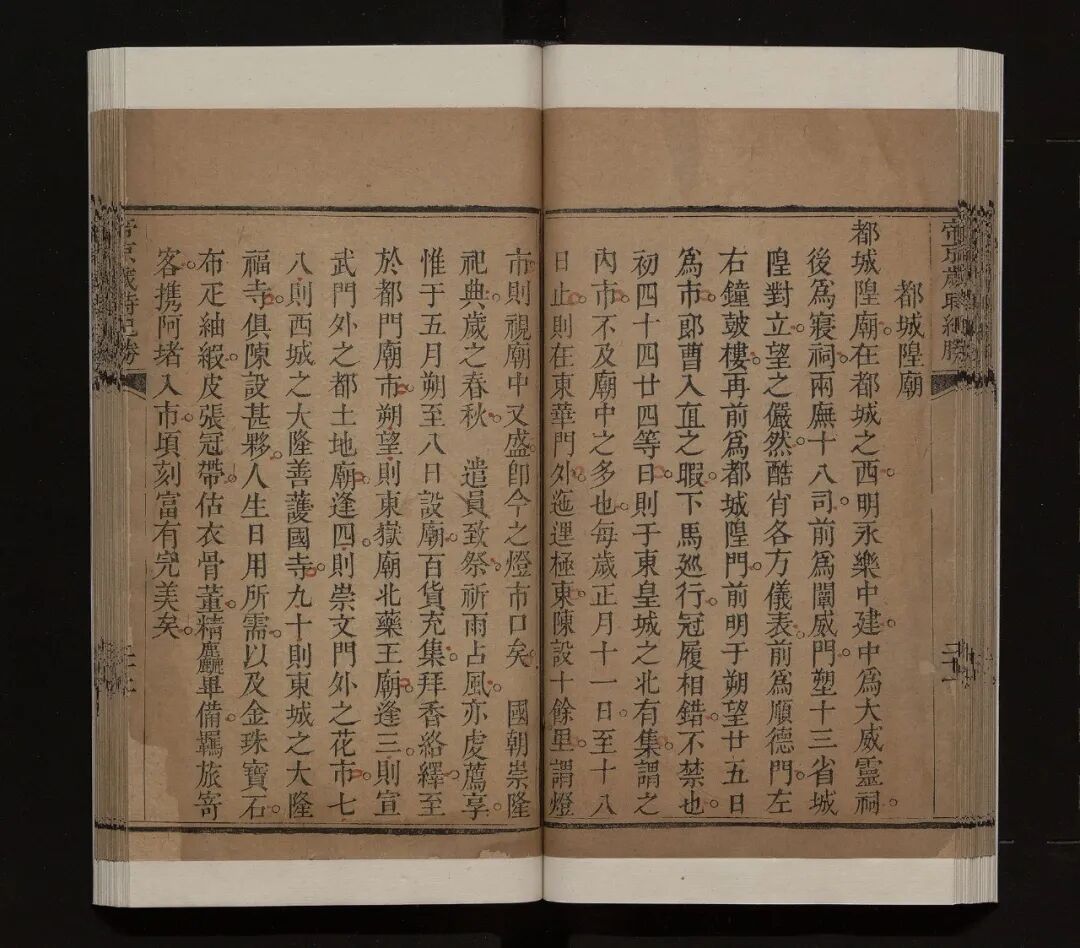 帝京歲時紀勝
都城隍廟
都城隍廟在都城之西明永樂中建中為大威靈祠
後為寢祠兩廡十八司前為闡威門塑十三省城
隍對立望之儼然酷肖各方儀表前為順德門左
右鐘鼓樓再前為都城隍門前明于朔望廿五日
為市郎曹入直之暇下馬巡行冠履相錯不禁也
初四十四廿四等日則于東皇城之北有集謂之
內市不及廟中之多也每歲正月十一日至十八
日止則在東華門外迤逦極東陳設十餘里謂燈
市則視廟中又盛卽今之燈市口矣 國朝崇隆
祀典歲之春秋 遣員致祭祈雨占風亦虔薦享
惟于五月朔至八日設廟百貨充集拜香絡繹至
於都門廟市朔望則東嶽廟北藥王廟逢三則宣
武門外之都土地廟逢四則崇文門外之花市七
八則西城之大隆善護國寺九十則東城之大隆
福寺俱陳設甚夥人生日用所需以及金珠寶石
布疋紬緞皮張冠帶估衣骨董精麤畢備羈旅寄
客攜阿堵入市頃刻富有完美矣
帝京歲時紀勝